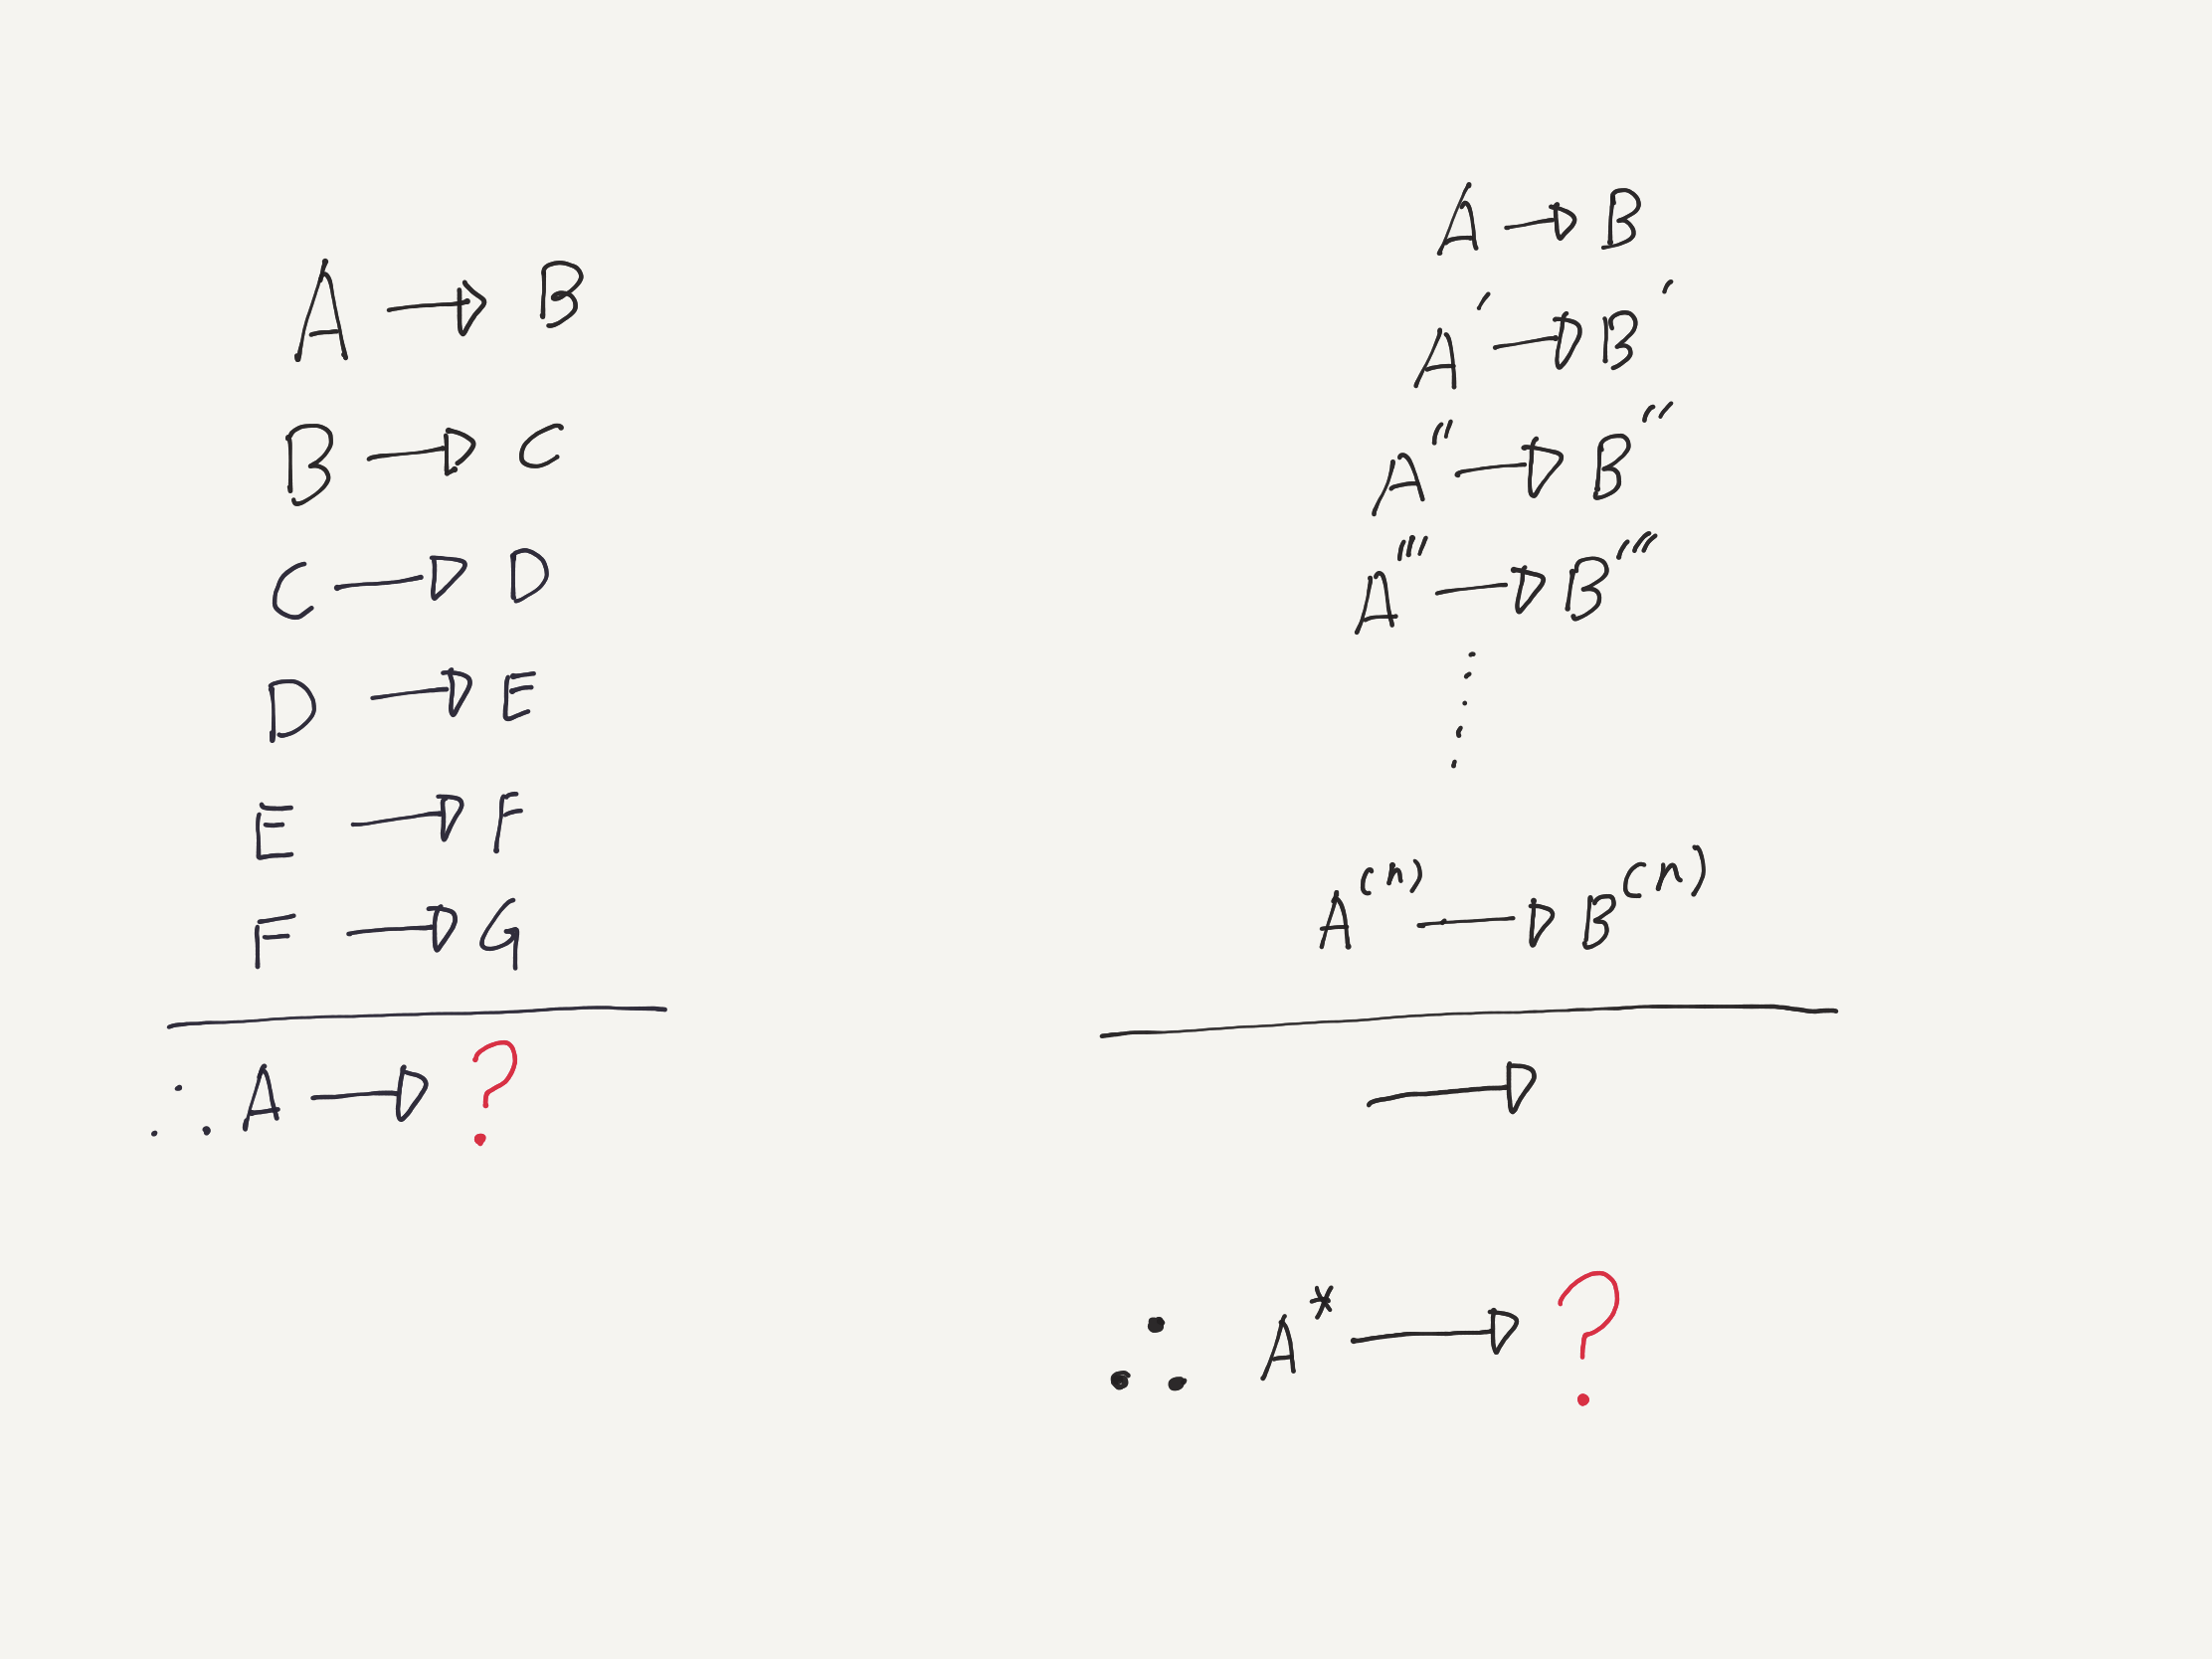 A → B
B → C
C → D
D → E
E → F
F → G
∴ A → ?
A → B
A′ → B′
A″ → B″
A‴ → B‴
⋮
A⁽ⁿ⁾ → B⁽ⁿ⁾
→
∴ A* → ?